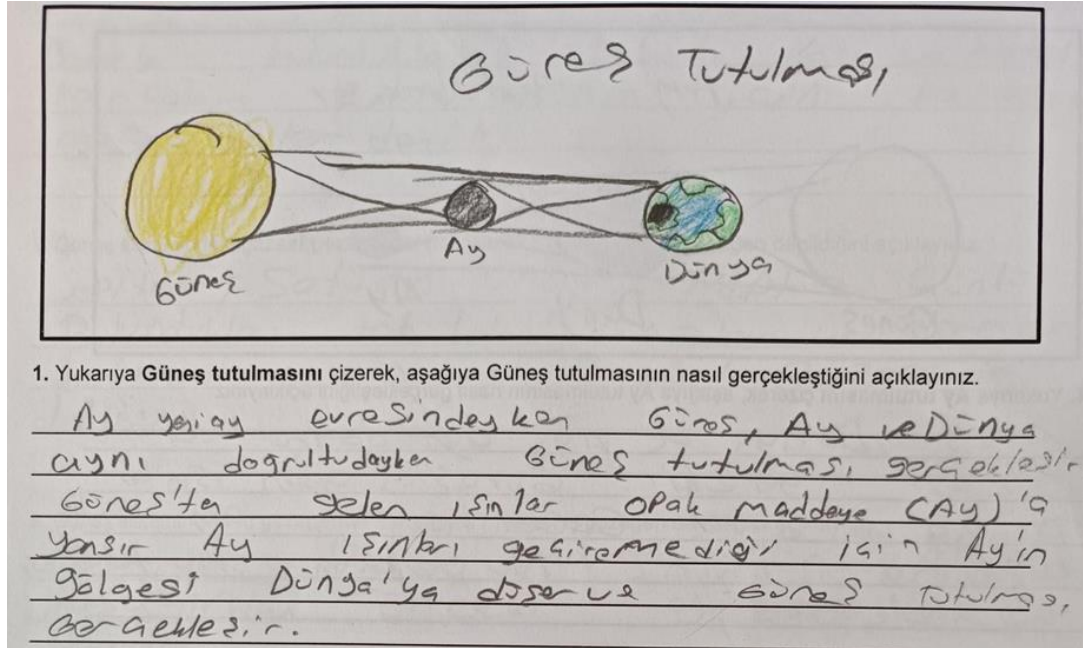 Güneş Tutulması
Güneş
Ay
Dünya
1. Yukarıya Güneş tutulmasını çizerek, aşağıya Güneş tutulmasının nasıl gerçekleştiğini açıklayınız.
Ay yeniay evresindeyken Güneş, Ay ve Dünya
aynı doğrultudayken Güneş tutulması gerçekleşir
Güneş'ten gelen ışınlar opak maddeye (Ay)'a
yansır Ay ışınları geçiremediği için Ay'ın
gölgesi Dünya'ya düşer ve Güneş Tutulması
Gerçekleşir.